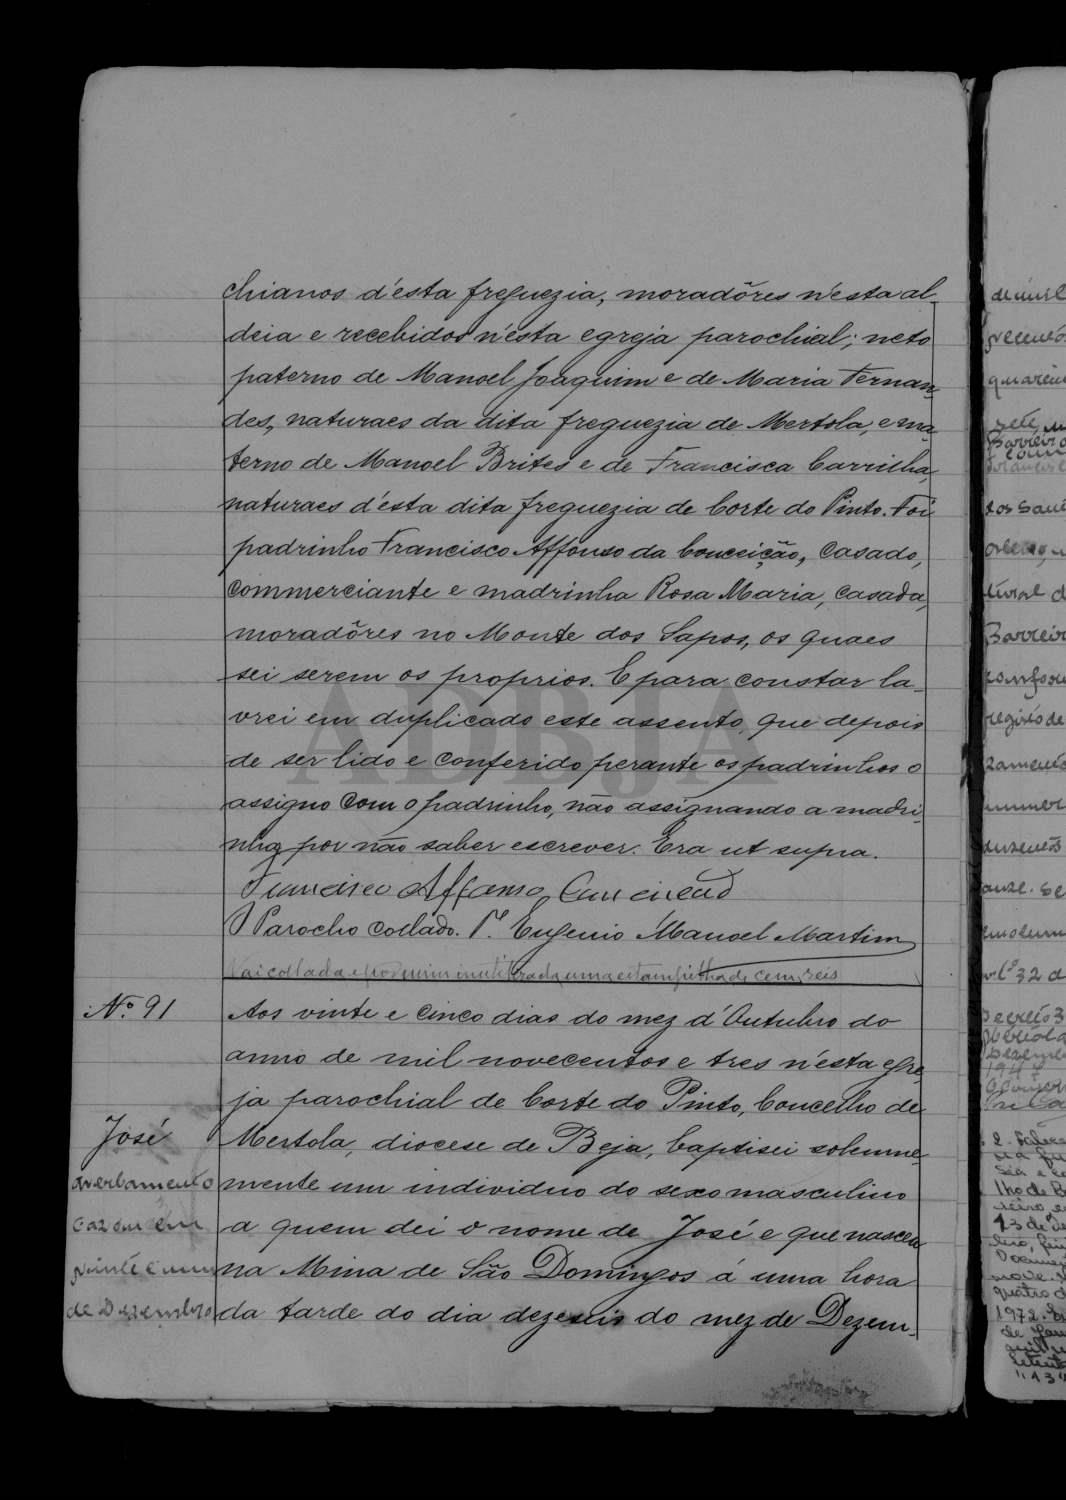 chianos d'esta freguezia, moradôres n'esta al-
deia e recebidos n'esta egreja parochial; neto
paterno de Manoel Joaquim e de Maria Fernan-
des, naturaes da dita freguezia de Mertola, e ma-
terno de Manoel Brites e de Francisca Carrilha,
naturaes d'esta dita freguezia de Corte do Pinto. Foi
padrinho Francisco Affonso da Conceição, casado,
commerciante e madrinha Rosa Maria, casada,
moradôres no Monte dos Sapos, os quaes
sei serem os proprios. E para constar la-
vrei em duplicado este assento, que depois
de ser lido e conferido perante os padrinhos o
assigno com o padrinho, não assignando a madri-
nha por não saber escrever. Era ut supra.
Francisco Affonso Conceicao
O Parocho Collado. P.e Eugenio Manoel Martins
Vai collada e por mim inutilizada uma estampilha de cem reis
Nº 91
Aos vinte e cinco dias do mez d'Outubro do
anno de mil novecentos e tres n'esta egre-
ja parochial de Corte do Pinto, Concelho de
Mertola, diocese de Beja, baptisei solemne-
mente um individuo do sexo masculino
a quem dei o nome de José e que nasceu
na Mina de São Domingos á uma hora
da tarde do dia dezeseis do mez de Dezem-
José
Averbamento
Cazou em
vinte e um
de Dezembro
ADBJA
de mil
quaren
sete, u
Barreiro
dos San
tivíl d
Barreir
confor
registo de
zamento
numer
duzentos
onze. Se
emolum
n.º 32 d
Decreto 3
1947
2. Falece
na fre
lho de B
reiro, e
13 de Ja
Docume
nove.
quatro d
1972.
de Jan
1134